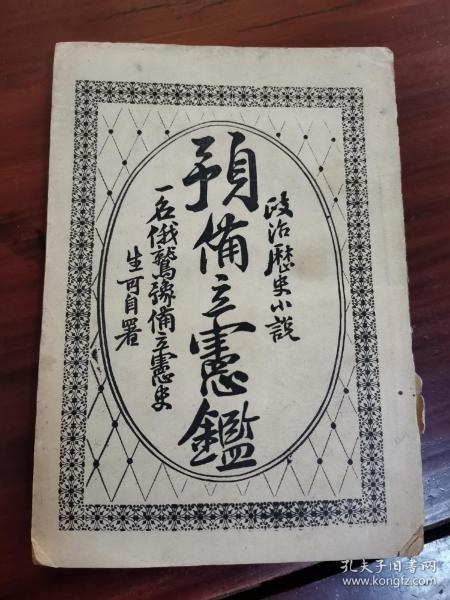 政治歷史小說
預備立憲鑑
一名俄鷲豫備立憲史
生可自署
孔夫子旧书网
www.kongfz.com